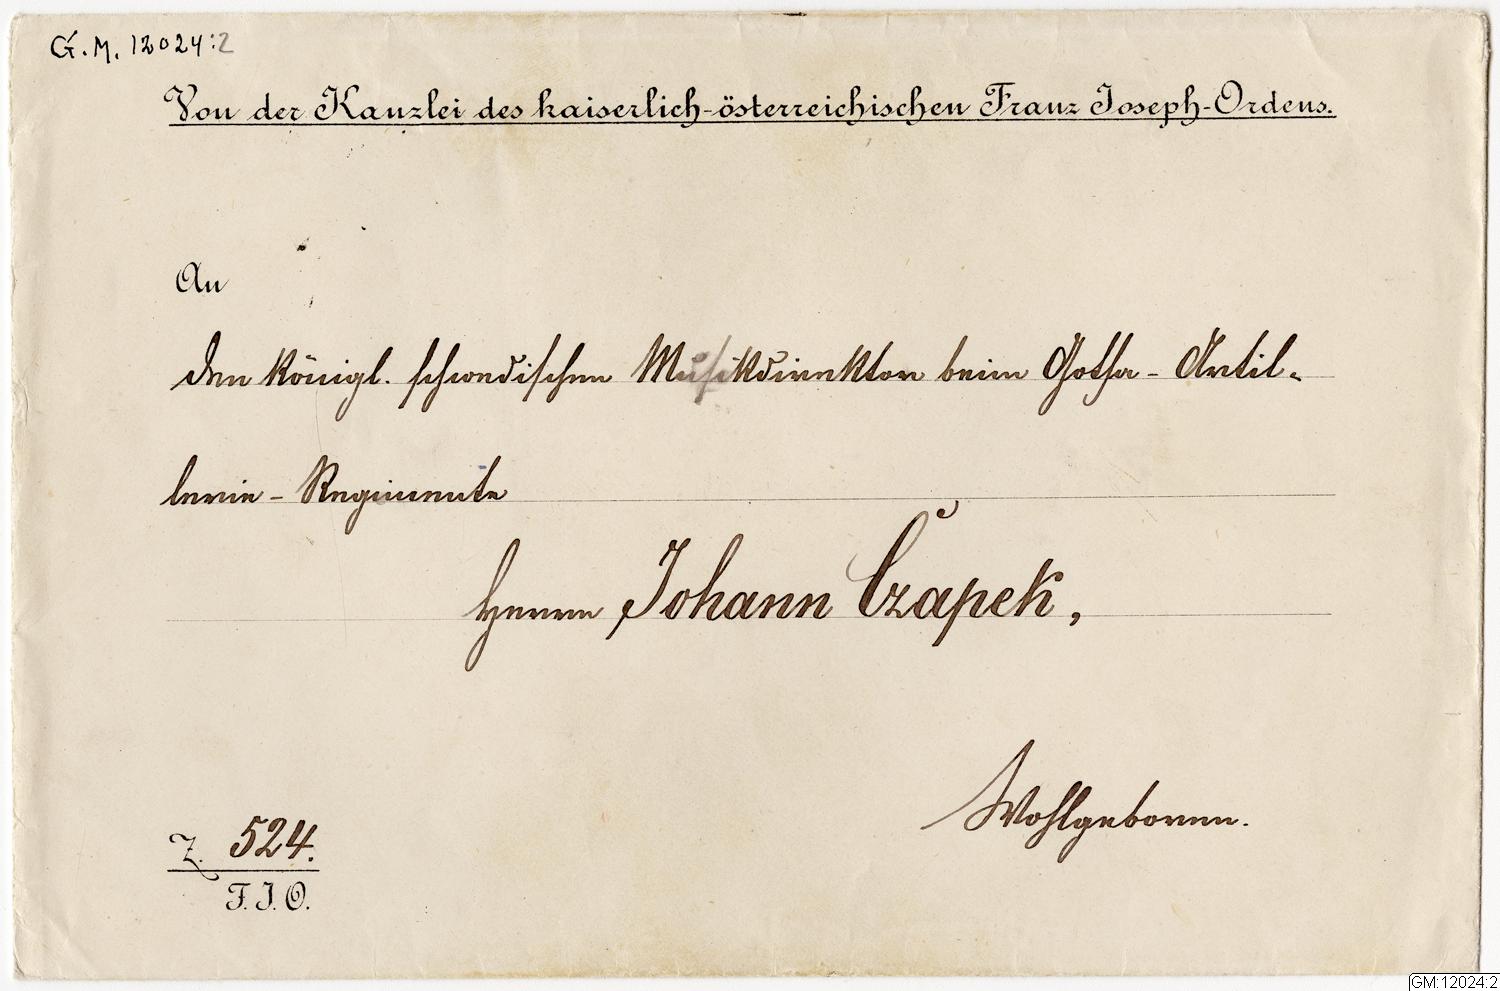 G.M. 12024:2
Von der Kanzlei des kaiserlich-österreichischen Franz Joseph-Ordens.
An
den königl. schwedischen Musikdirektor beim Gotha-Artil-
lerie-Regimente
Herrn Johann Czapek,
Wohlgeboren.
Z. 524.
F. J. O.
GM:12024:2